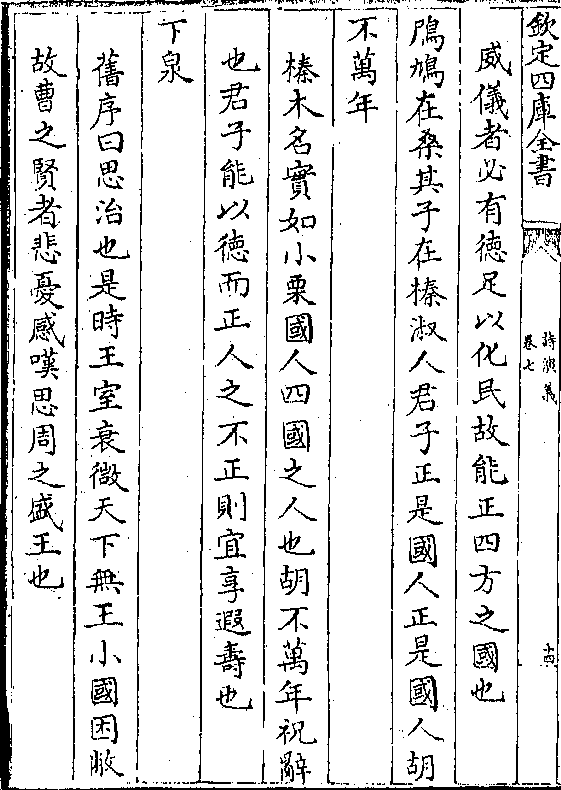 欽定四庫全書
詩演義
卷七
十四
威儀者必有德足以化民故能正四方之國也
鳲鳩在桑其子在榛淑人君子正是國人正是國人胡
不萬年
榛木名實如小栗國人四國之人也胡不萬年祝辭
也君子能以德而正人之不正則宜享遐壽也
下泉
舊序曰思治也是時王室衰微天下無王小國困敝
故曹之賢者悲憂感嘆思周之盛王也